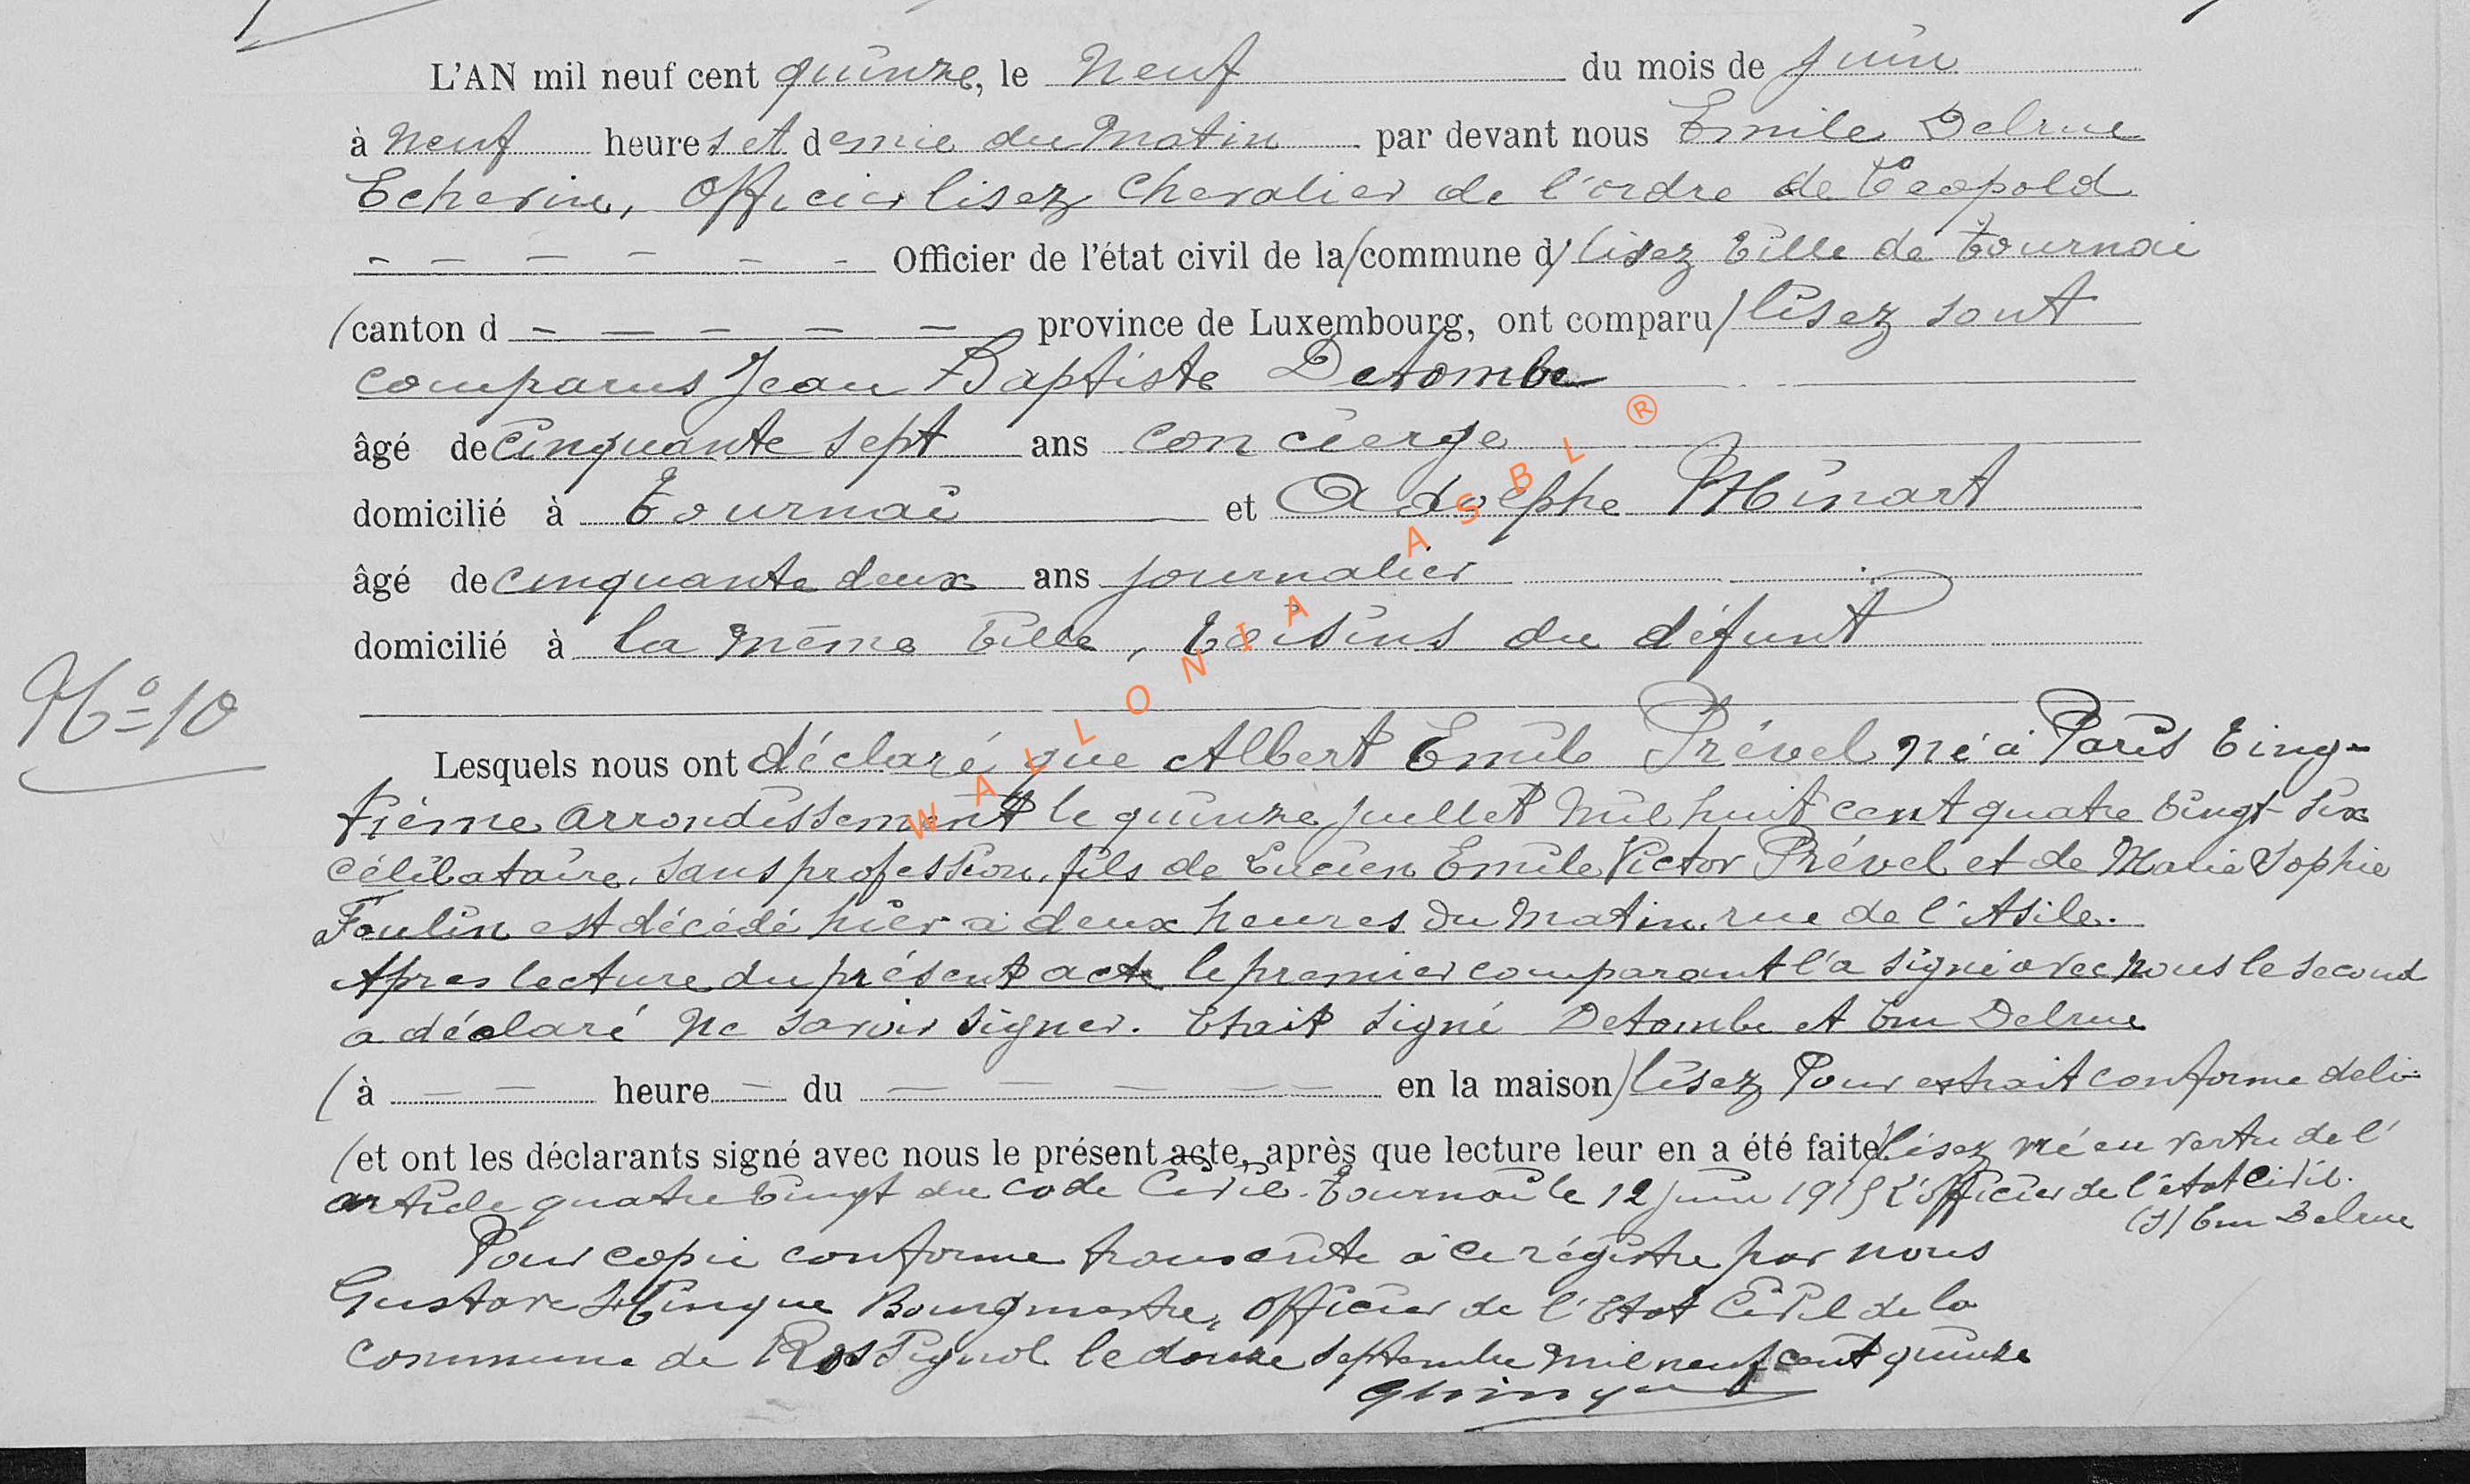 L'AN mil neuf cent quinze, le neuf du mois de juin
à neuf heures et demie du matin par devant nous Emile Delrue
Echevin, Officier lisez chevalier de l'ordre de Léopold
- - - - - - Officier de l'état civil de la (commune d) lisez ville de Tournai
(canton d - - - - - province de Luxembourg, ont comparu) lisez sont
comparus Jean Baptiste Detombe
âgé de cinquante sept ans concierge
domicilié à Tournai et Adolphe Minart
âgé de cinquante deux ans journalier
domicilié à la même ville, voisins du défunt
No 10
Lesquels nous ont déclaré que Albert Emile Prével né à Paris ving-
tième arrondissement le quinze juillet mil huit cent quatre vingt six
célibataire, sans profession, fils de Lucien Emile Victor Prével et de Marie Sophie
Foulin est décédé hier à deux heures du matin, rue de l'Asile.
Apres lecture du présent acte le premier comparant l'a signé avec nous le second
a déclaré ne savoir signer. Etait signé Detombe et Em Delrue
(à - - heure - du - - - - - en la maison) lisez Pour extrait conforme déli-
(et ont les déclarants signé avec nous le présent acte, après que lecture leur en a été faite.) lisez vré en vertu de l'
article quatre vingt du code Civil. Tournai le 12 juin 1915 l'officier de l'état civil.
(s) Em Delrue
Pour copie conforme transcrite à ce régistre par nous
Gustave Hinque Bourgmestre, officier de l'Etat Civil de la
commune de Rossignol le douze septembre mil neuf cent quinze
GHinque
WALLONIA ASBL ®